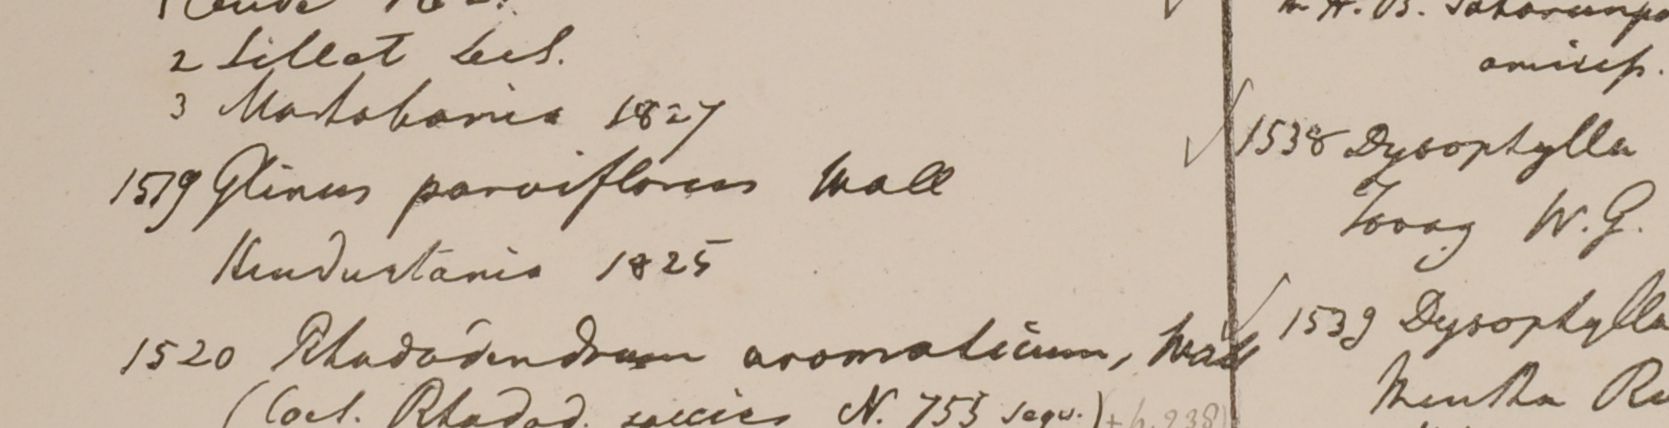 2 Sillet
3 Martabania 1827
1519 Glinus parviflorus Wall
Hindustania 1825
1520 Rhododendrum aromaticum, Wall
(Cael. Rhodod. species N. 753 seqv.)
amicis.
1538 Dysophylla
W.G.
1539 Dysophylla
Mentha